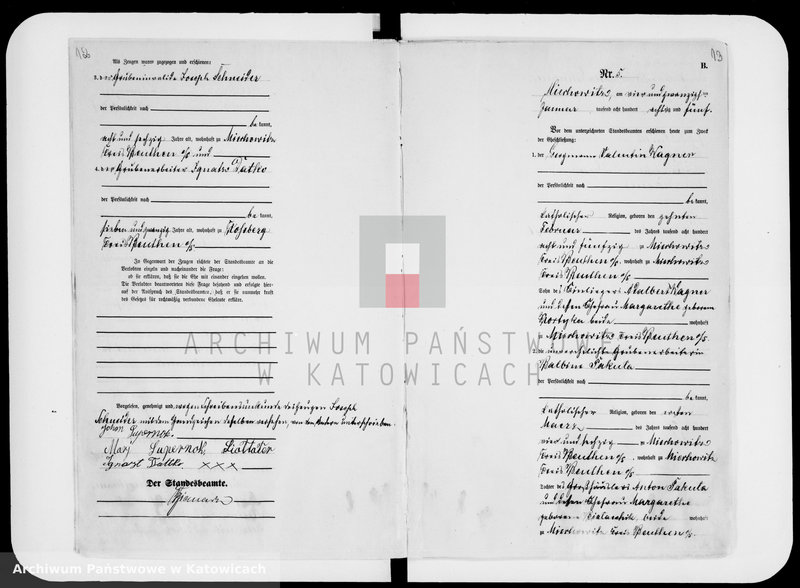 156
Als Zeugen waren zugezogen und erschienen:
3. der Grubeninvalide Joseph Schneider
der Persönlichkeit nach
be kannt,
acht und sechzig Jahre alt, wohnhaft zu Miechowitz
Kreis Beuthen o/s und
4. der Grubenarbeiter Ignatz
der Persönlichkeit nach
be kannt,
sieben und zwanzig Jahre alt, wohnhaft zu Rossberg
Kreis Beuthen o/s
In Gegenwart der Zeugen richtete der Standesbeamte an die
Verlobten einzeln und nacheinander die Frage:
ob sie erklären, daß sie die Ehe mit einander eingehen wollen.
Die Verlobten beantworteten diese Frage bejahend und erfolgte hier-
auf der Ausspruch des Standesbeamten, daß er sie nunmehr kraft
des Gesetzes für rechtmäßig verbundene Eheleute erkläre.
Vorgelesen, genehmigt und, wegen Schreibensunkunde des Zeugen Joseph
Schneider mit dem Handzeichen desselben versehen, von den unterschrieben.
Johan
xxx
Der Standesbeamte.
13
B.
Nr. 5.
Miechowitz, am vier und zwanzigsten
Januar tausend acht hundert achtzig und fünf.
Vor dem unterzeichneten Standesbeamten erschienen heute zum Zweck
der Eheschließung:
1. der Bergmann Valentin Kagner
der Persönlichkeit nach
be kannt,
katholischer Religion, geboren den zehnten
Februar des Jahres tausend acht hundert
acht und fünfzig zu Miechowitz
Kreis Beuthen o/s, wohnhaft zu Miechowitz
Kreis Beuthen o/s
Sohn des Einliegers Adalbert Kagner
und dessen Ehefrau Margarethe geborenen
beide wohnhaft
zu Miechowitz Kreis Beuthen o/s.
2. die unverehelichte Grubenarbeiterin
Balbine Pakula
der Persönlichkeit nach
be kannt,
katholischer Religion, geboren den ersten
Maerz des Jahres tausend acht hundert
vier und sechzig zu Miechowitz
Kreis Beuthen o/s, wohnhaft zu Miechowitz
Kreis Beuthen o/s
Tochter des Anton Pakula
und dessen Ehefrau Margarethe
geborene beide wohnhaft
zu Miechowitz Kreis Beuthen o/s.
ARCHIWUM PAŃSTWOWE
W KATOWICACH
Archiwum Państwowe w Katowicach